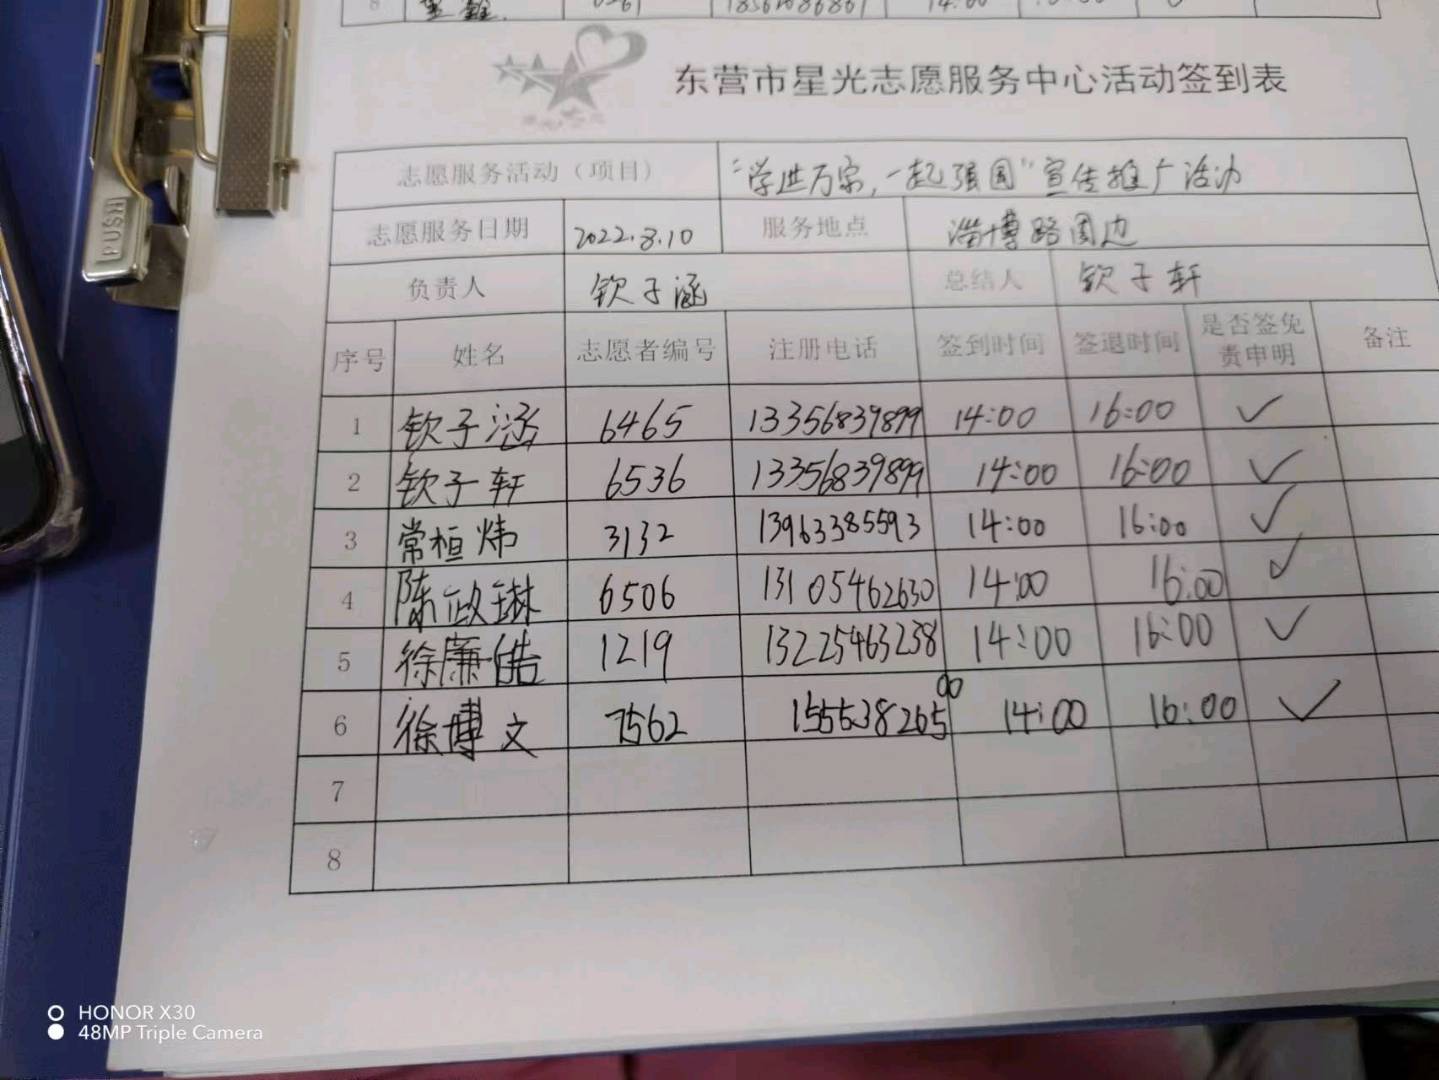 8 14:00
东营市星光志愿服务中心活动签到表
志愿服务活动（项目） “学进万家，一起强国”宣传推广活动
志愿服务日期 2022.8.10 服务地点 淄博路周边
负责人 钦子涵 总结人 钦子轩
序号 姓名 志愿者编号 注册电话 签到时间 签退时间 是否签免责申明 备注
1 钦子涵 6465 13356839899 14:00 16:00 ✓
2 钦子轩 6536 13356839899 14:00 16:00 ✓
3 常桓炜 3132 13963385593 14:00 16:00 ✓
4 陈政琳 6506 13105462630 14:00 16:00 ✓
5 徐廉皓 1219 13225463238 14:00 16:00 ✓
6 徐博文 7562 15553826500 14:00 16:00 ✓
7
8
PUSH
HONOR X30
48MP Triple Camera